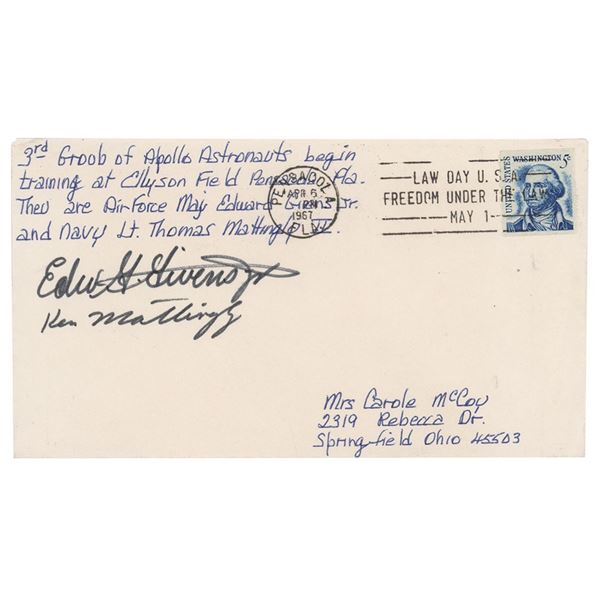 3rd Groob of Apollo Astronauts begin
training at Ellyson Field Pensacola Fla.
They are Air Force May Edward Jr.
and Navy Lt. Thomas Mattingly II.
Edw G Givens Jr
Ken Mattingly
PENSACOLA
APR 6
PM
1967
FLA
LAW DAY U. S. A
FREEDOM UNDER THE LAW
MAY 1
WASHINGTON 5c
UNITED STATES
Mrs Carole McCoy
2319 Rebecca Dr.
Springfield Ohio 45503